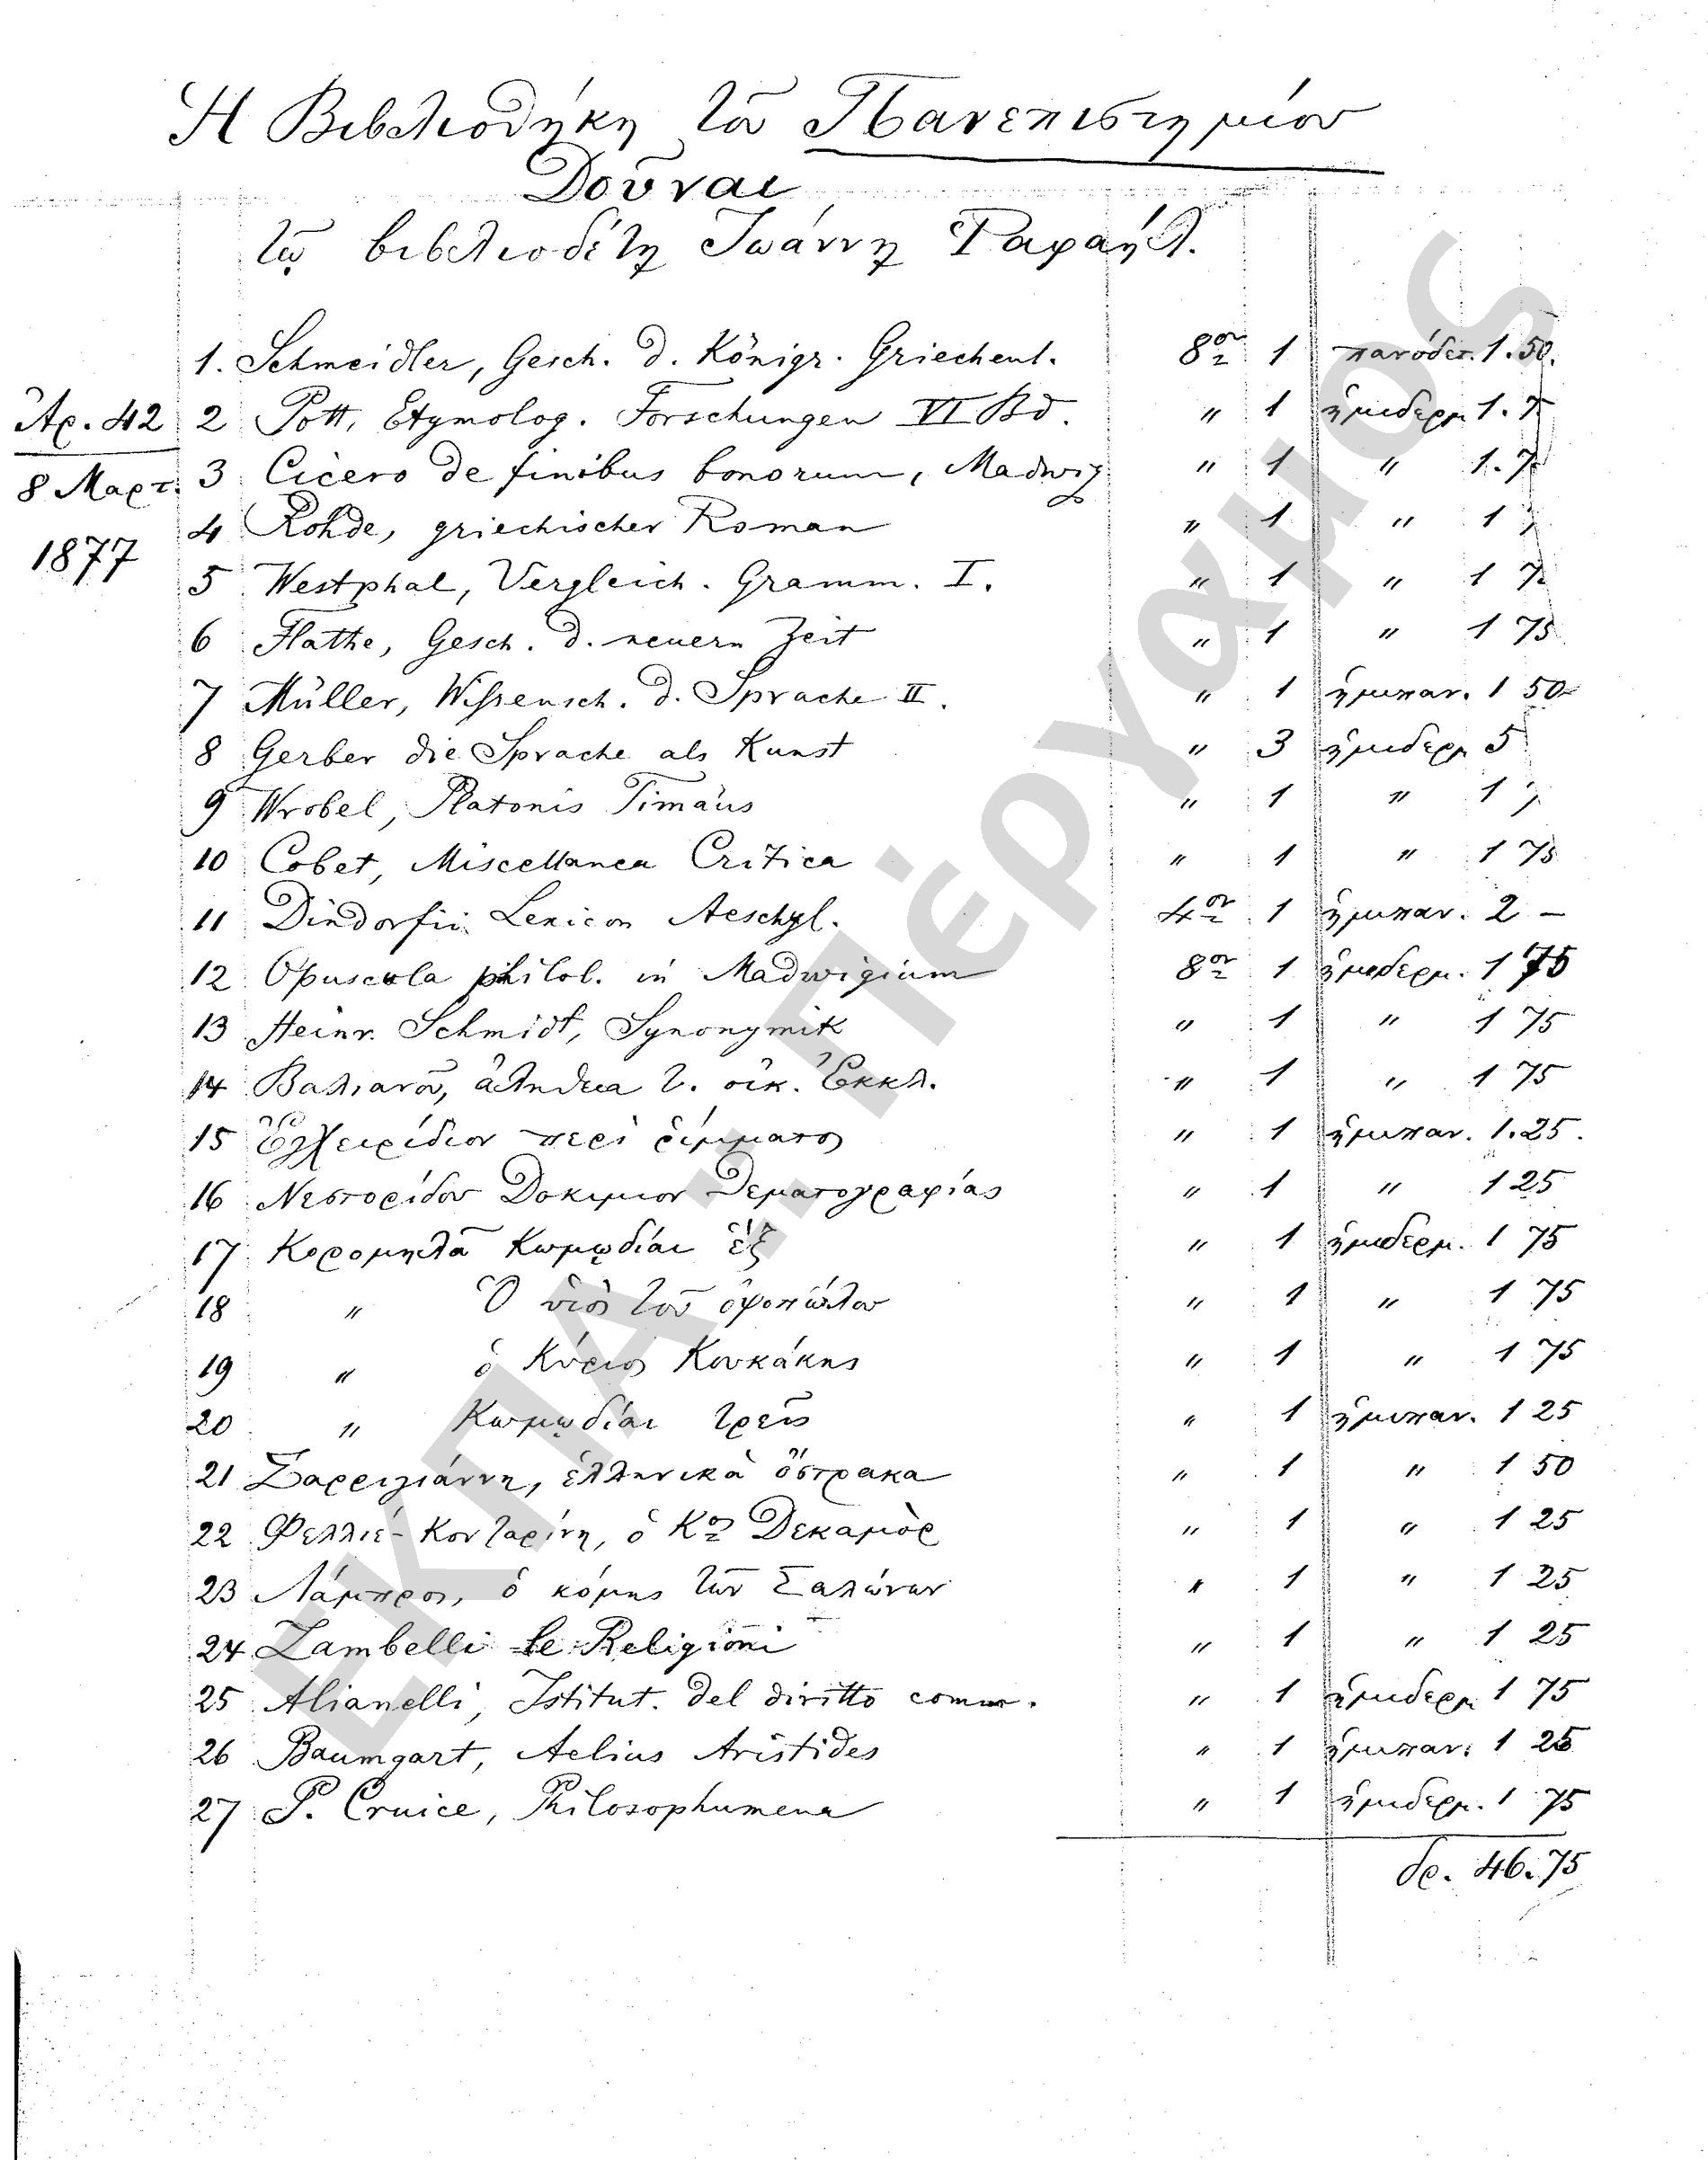 Ἡ Βιβλιοθήκη τοῦ Πανεπιστημίου
Δοῦναι
τῷ βιβλιοδέτῃ Ἰωάννῃ Ραφαήλ.
Ἀρ. 42
8 Μαρτ.
1877
1. Schmeidler, Gesch. d. Königr. Griechenl. 8ον 1 πανόδετ. 1.50.
2 Pott, Etymolog. Forschungen VI Bd. " 1 ἡμιδερμ 1.7
3 Cicero de finibus bonorum, Madwig " 1 " 1.7
4 Rohde, griechischer Roman " 1 " 1 7
5 Westphal, Vergleich. Gramm. I. " 1 " 1 7
6 Flathe, Gesch. d. neuern Zeit " 1 " 1 75
7 Müller, Wissensch. d. Sprache II. " 1 ἡμιπαν. 1 50
8 Gerber die Sprache als Kunst " 3 ἡμιδερμ 5
9 Wrobel, Platonis Timäus " 1 " 1 7
10 Cobet, Miscellanea Critica " 1 " 1 75
11 Dindorfii Lexicon Aeschyl. 4ον 1 ἡμιπαν. 2 –
12 Opuscula philol. in Madwigium 8ον 1 ἡμιδερμ. 1 75
13 Heinr. Schmidt, Synonymik " 1 " 1 75
14 Βαλιανοῦ, ἀλήθεια τ. οἰκ. Ἐκκλ. " 1 " 1 75
15 Ἐγχειρίδιον περὶ " 1 ἡμιπαν. 1.25.
16 Νεστορίδου Δοκιμιον Θεματογραφίας " 1 " 1 25
17 Κορομηλᾶ Κωμῳδίαι ἕξ " 1 ἡμιδερμ. 1 75
18 " Ὁ υἱὸς τοῦ ὀψοπώλου " 1 " 1 75
19 " ὁ Κύριος Κουκάκης " 1 " 1 75
20 " Κωμῳδίαι τρεῖς " 1 ἡμιπαν. 1 25
21 ἑλληνικὰ ὄστρακα " 1 " 1 50
22 Φελλιέ-Κονταρίνη, ὁ Κος Δεκαμὸρ " 1 " 1 25
23 Λάμπρος, ὁ κόμης τῶν Σαλώνων " 1 " 1 25
24 Zambelli le Religioni " 1 " 1 25
25 Alianelli, Istitut. del diritto comm. " 1 ἡμιδερμ 1 75
26 Baumgart, Aelius Aristides " 1 ἡμιπαν. 1 25
27 P. Cruice, Philosophumena " 1 ἡμιδερμ. 1 75
δρ. 46.75
ΕΚΠΑ:: Πέργαμος